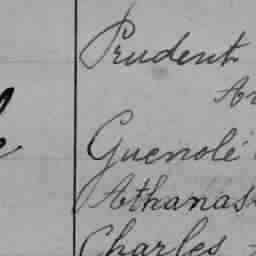 Prudent
Guenolé
Athanas
Charles